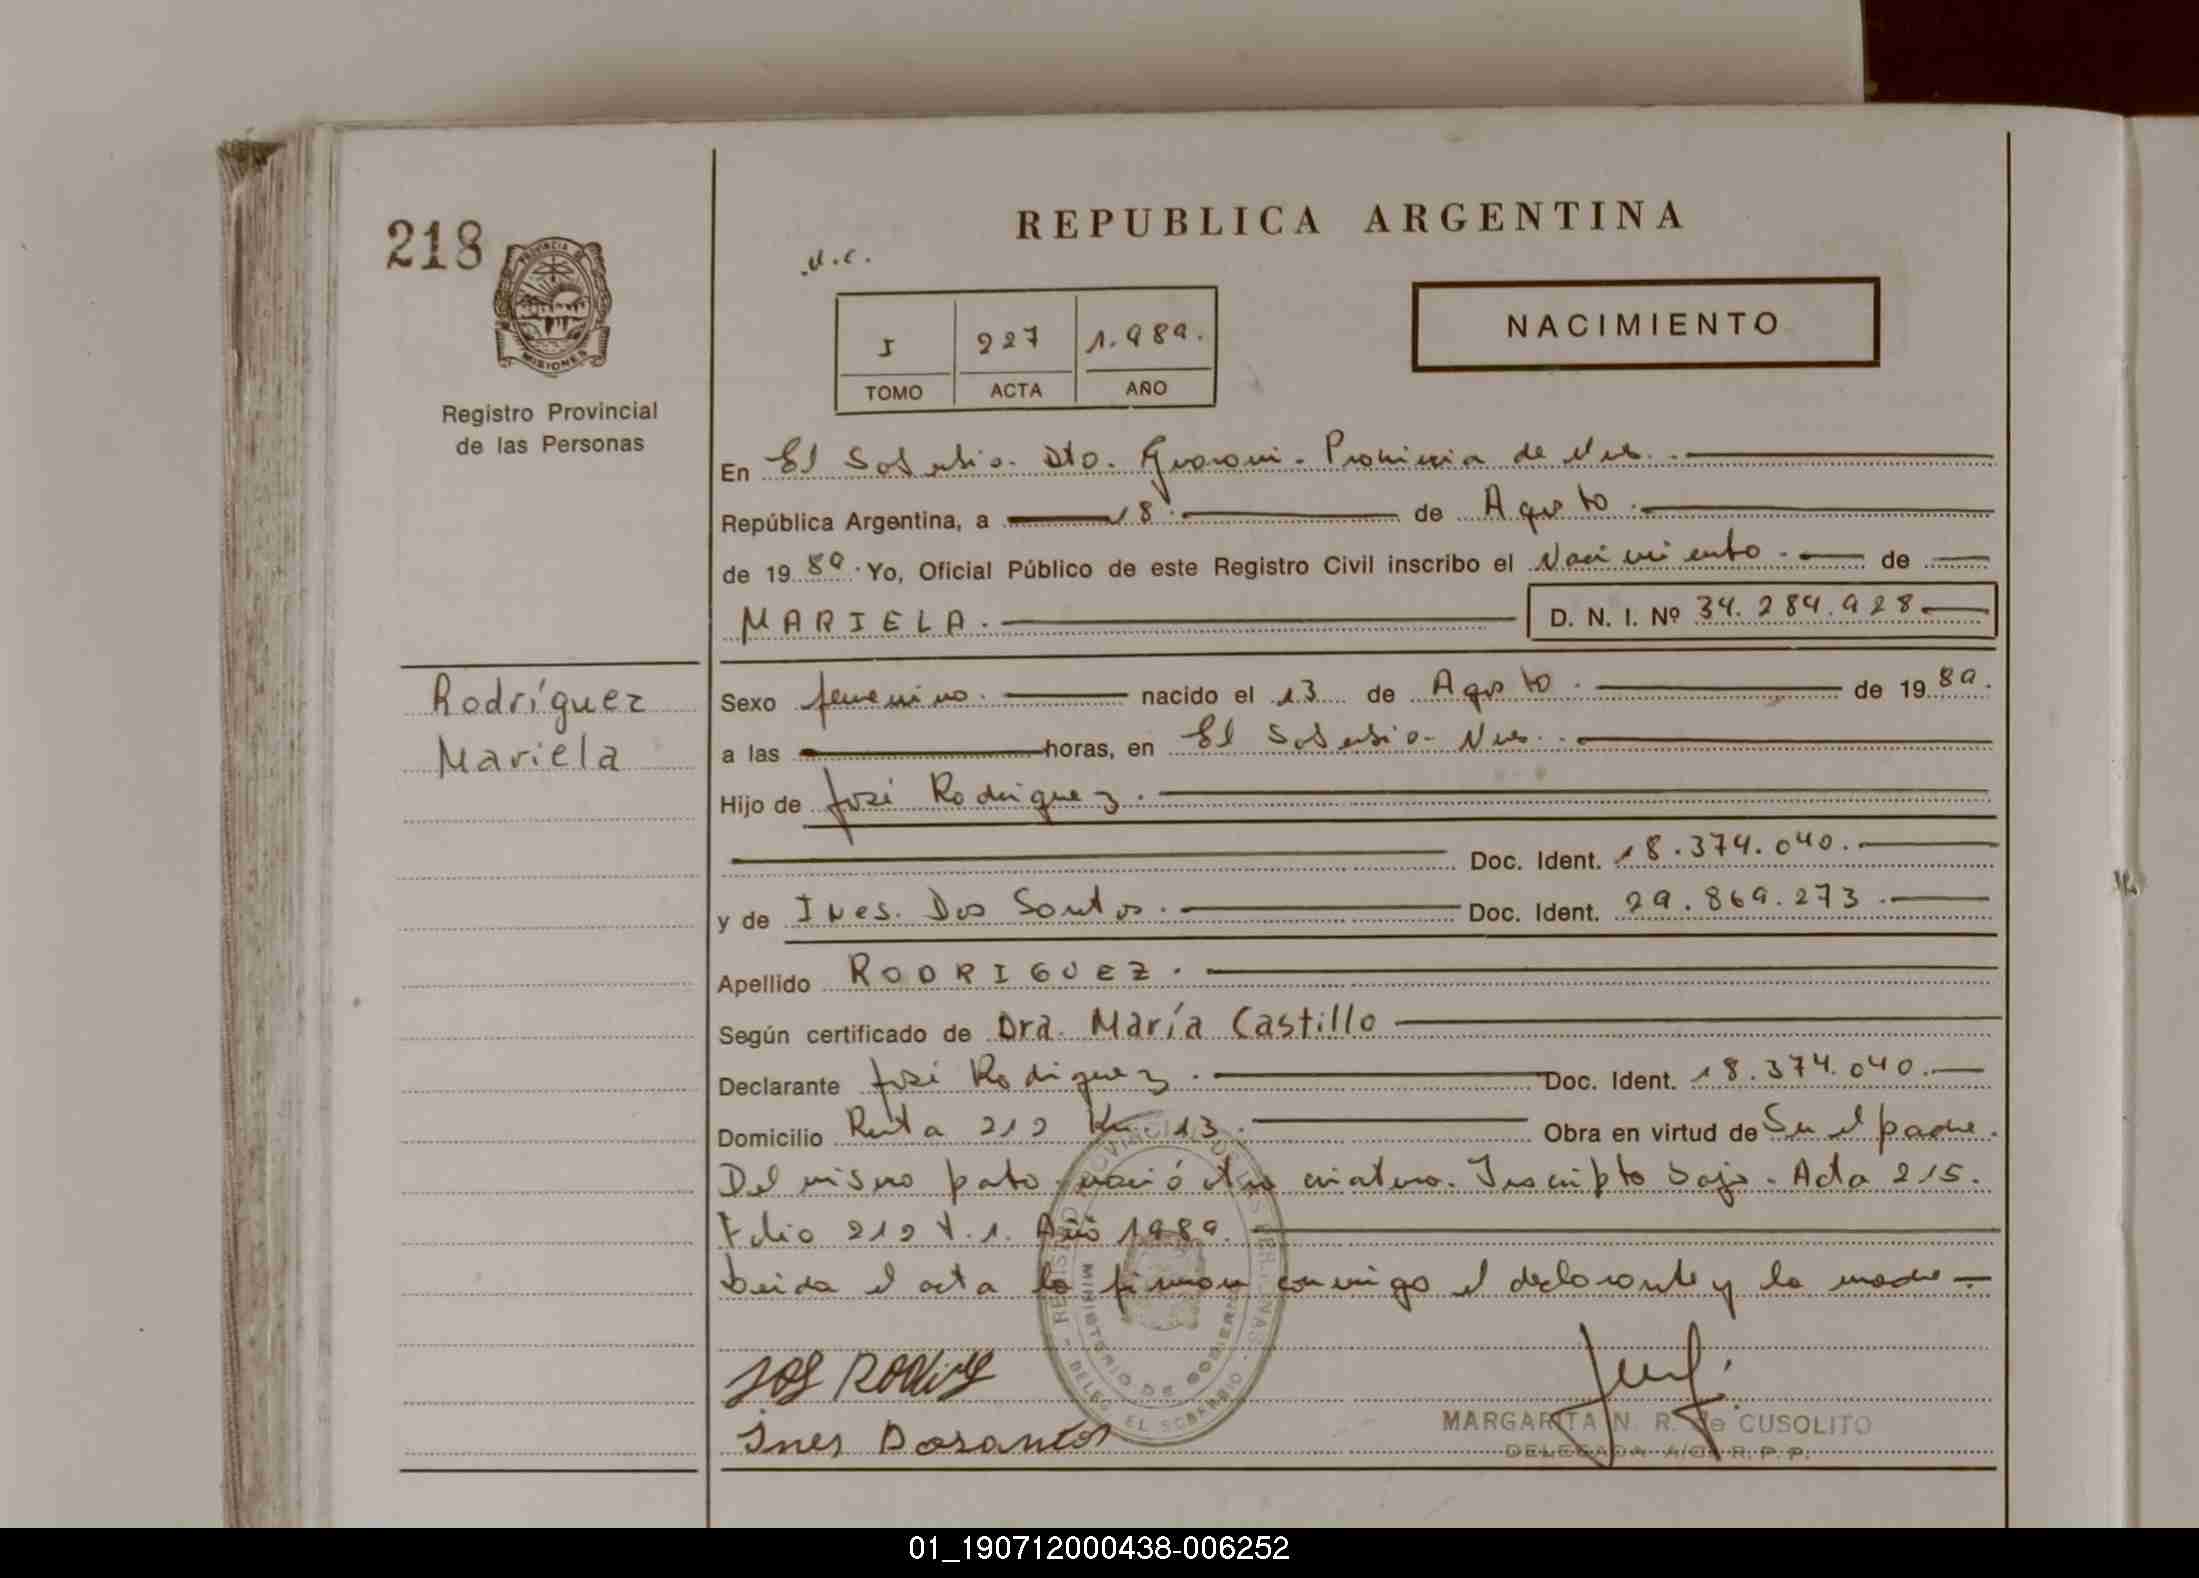 218
PROVINCIA
MISIONES
Registro Provincial
de las Personas
REPUBLICA ARGENTINA
I 227 1.989.
TOMO ACTA AÑO
NACIMIENTO
En El Soberbio. Dto. Guarani. Provincia de Mnes.
República Argentina, a 18. de Agosto.
de 1989. Yo, Oficial Público de este Registro Civil inscribo el Nacimiento. de
MARIELA. D. N. I. Nº 34.284.928
Rodríguez
Mariela
Sexo femenino. nacido el 13 de Agosto. de 1989.
a las horas, en El Soberbio. Mnes.
Hijo de José Rodriguez.
Doc. Ident. 18.374.040.
y de Ines. Dos Santos. Doc. Ident. 29.869.273.
Apellido RODRIGUEZ.
Según certificado de Dra. María Castillo
Declarante José Rodriguez. Doc. Ident. 18.374.040.
Domicilio Ruta 212 Km. 13. Obra en virtud de Ser el padre.
Del mismo parto nació otra criatura. Inscripto bajo. Acta 215.
Folio 212 T.1. Año 1989.
Leida el acta la firman conmigo el declarante y la madre
Ines Dosantos
MARGARITA N. R. de CUSOLITO
DELEGADA A/C. R. P. P.
MINISTERIO DE GOBIERNO
DELEG. EL SOBERBIO
01_190712000438-006252